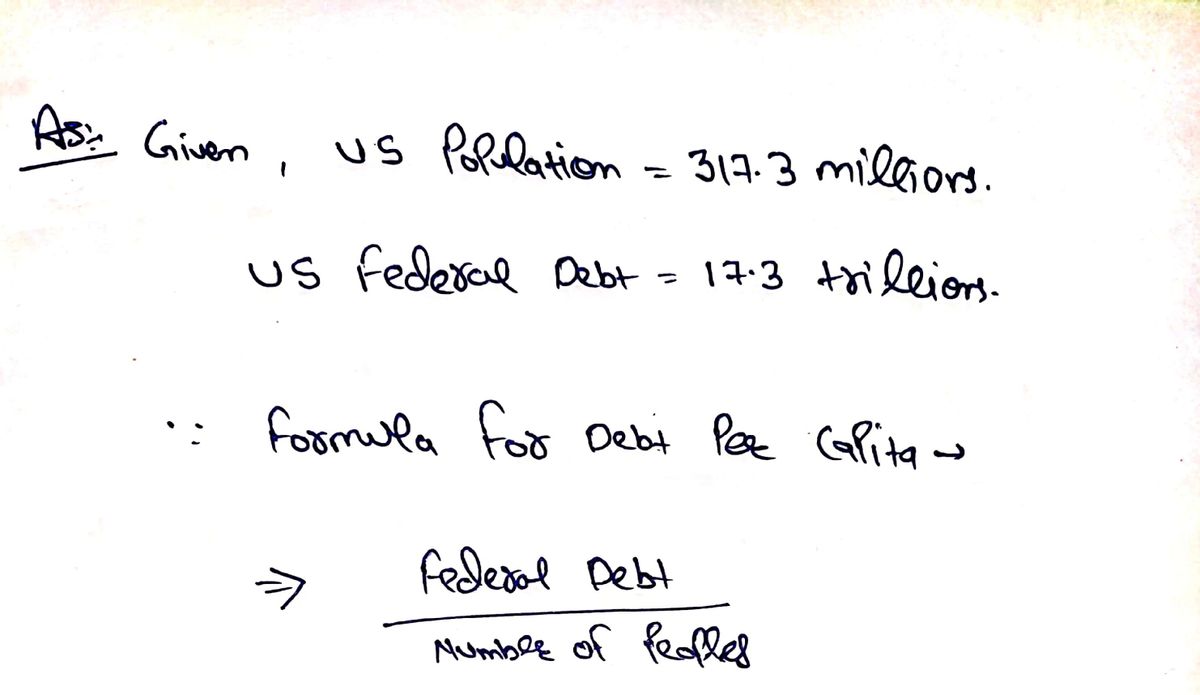 As:- Given, US Population = 317.3 millions.
US Federal Debt = 17.3 trillions.
∵ formula for Debt Per Capita →
⇒ Federal Debt
Number of Peoples